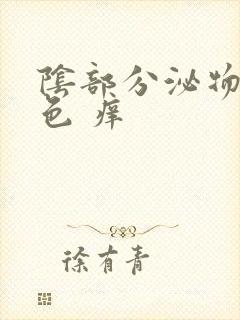 陰部分泌物
色 痒
徐有青